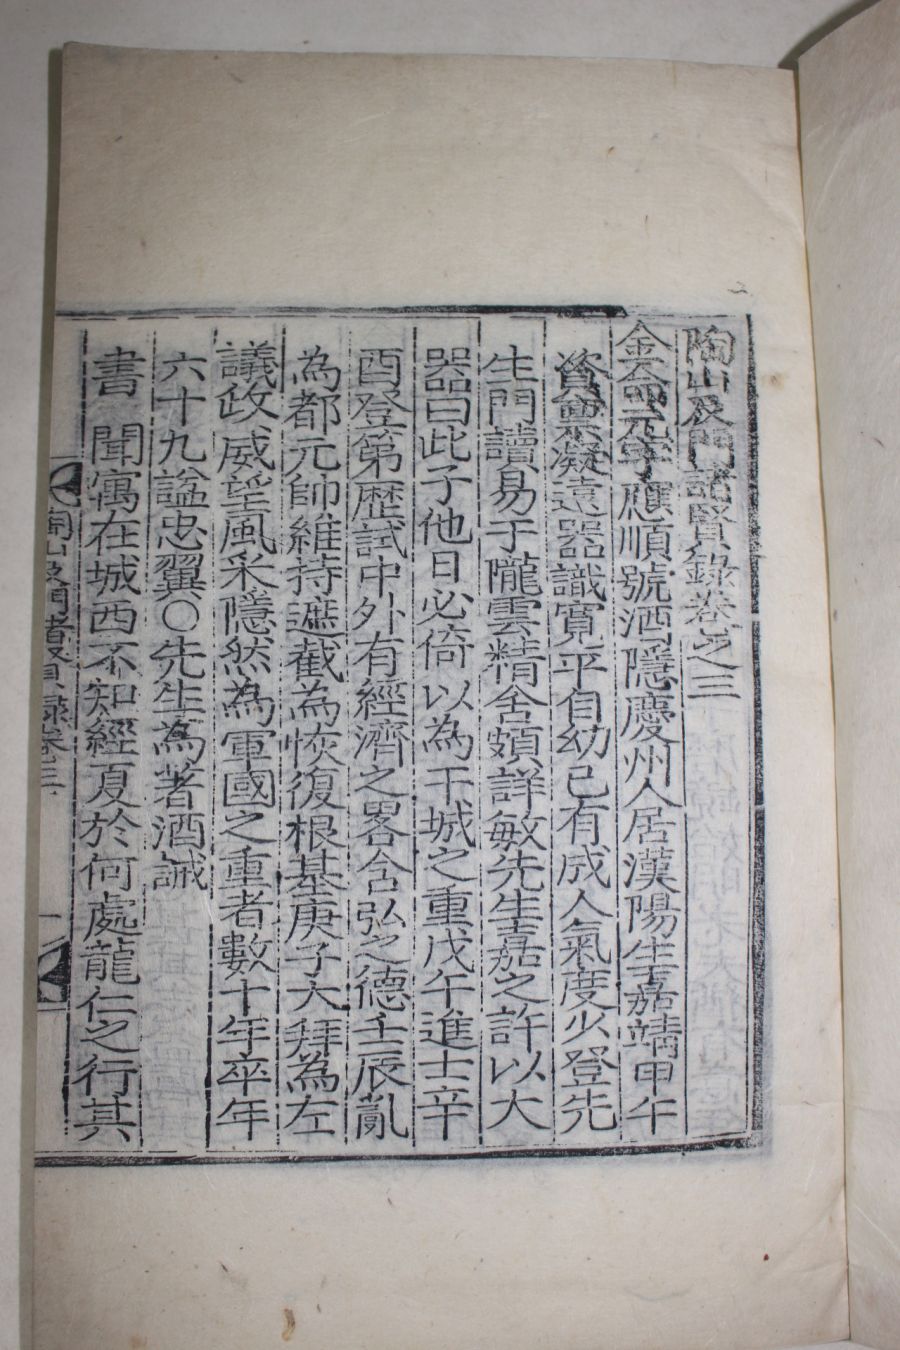 陶山及門諸賢錄卷之三
金命元字應順號酒隱慶州人居漢陽生嘉靖甲午
資稟凝遠器識寬平自幼已有成人氣度少登先
生門讀易于隴雲精舍頗詳敏先生嘉之許以大
器曰此子他日必倚以為干城之重戊午進士辛
酉登第歷試中外有經濟之畧含弘之德壬辰亂
為都元帥維持遮截為恢復根基庚子大拜為左
議政威望風采隱然為軍國之重者數十年卒年
六十九謚忠翼○先生為著酒誡
書 聞寓在城西不知經夏於何處龍仁之行其
陶山及門諸賢錄卷三 一